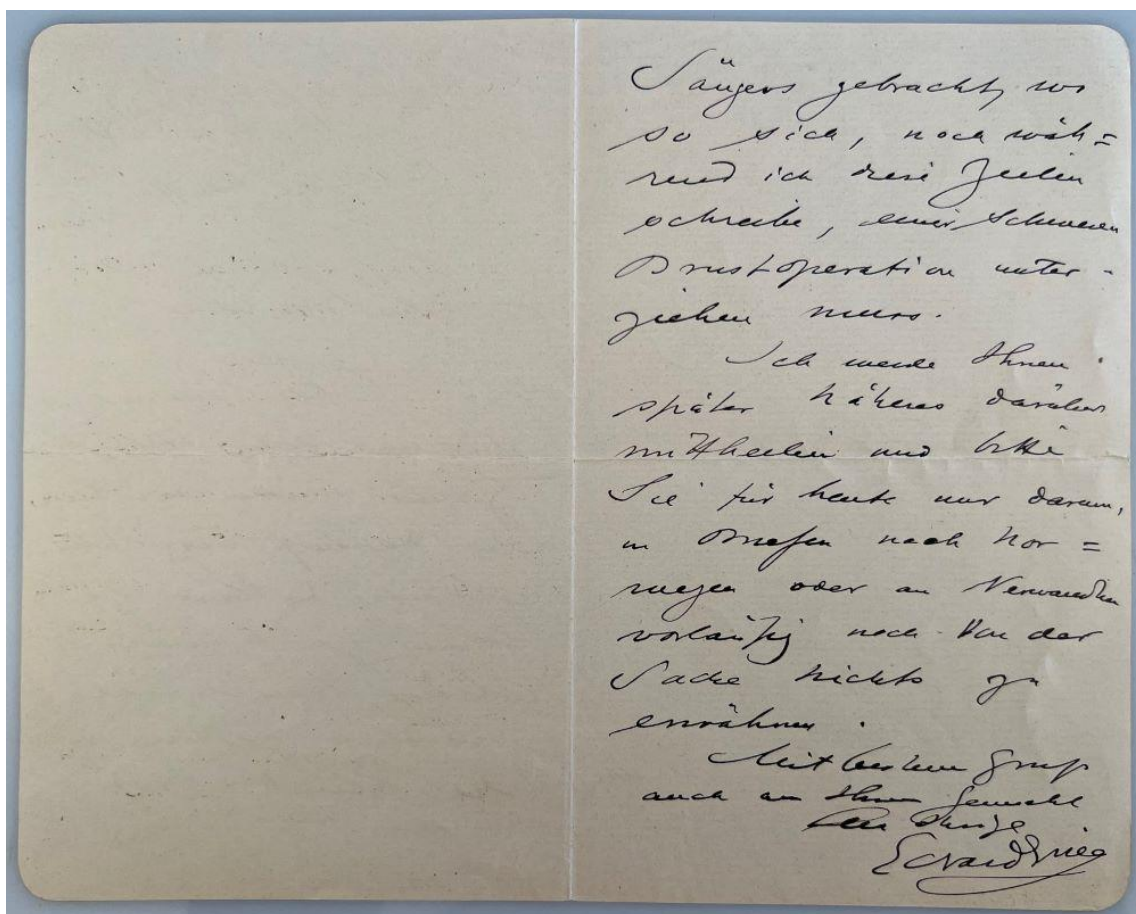 Sängers gebracht, wo
so sich, noch wäh=
rend ich diese Zeilen
schreibe, einer schweren
Brustoperation unter-
ziehen muss.
Ich werde Ihnen
später Näheres darüber
mittheilen und bitte
Sie für heute nur darum,
in Briefen nach Nor=
wegen oder an Verwandten
vorläufig noch von der
Sache nichts zu
erwähnen.
Mit bestem Gruß
auch an Ihren Gemahl
Ihr
Edvard Grieg